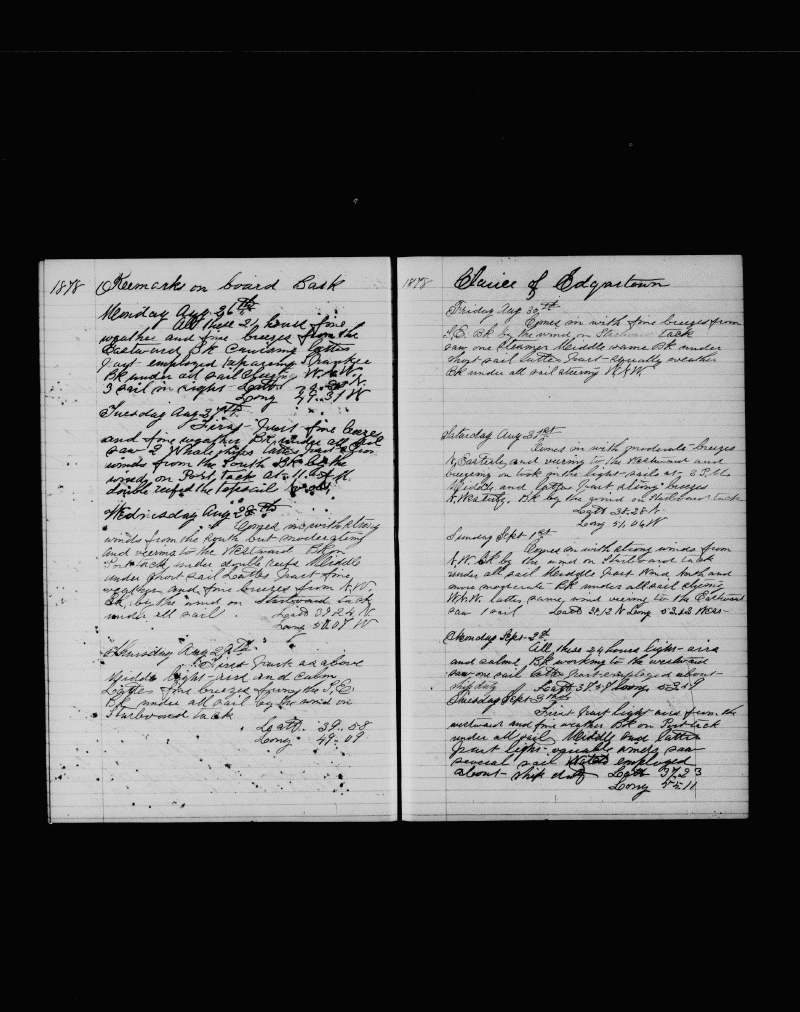 1878 Remarks on board Bark
Monday Aug 26th
All these 24 hours fine
weather and fine breezes from the
Eastward Bk Cruising latter
part employed repairing
Bk under all sail Steering W.N.W.
3 sail in sight Latt N
Long 49.31 W
Tuesday Aug 27th
First part fine breezes
and fine weather Bk under all sail
saw 2 Whaleships latter part
winds from the South Bk by the
wind on Port tack at 11
double reefed the Topsail
Wednesday Aug 28th
Comes in with strong
winds from the South but moderating
and veering to the Westward Bk on
Port tack under double reefs Middle
under short sail Latter part fine
weather and fine breezes from N.W.
Bk by the wind on Starboard tack
under all sail Latt 39.24 N.
Long 50.07 W
Thursday Aug 29th
First part as above
Middle light airs and calm
Latter fine breezes from the S.E
Bk under all sail by the wind on
Starboard tack
Latt. 39.58
Long 49.09
1878 Clarice of Edgartown
Friday Aug 30th
Comes in with fine breezes from
S.E. Bk by the wind on Starboard tack
saw one Steamer Middle same Bk under
short sail latter part squally weather
Bk under all sail steering W.N.W.
Saturday Aug 31st
Comes in with moderate breezes
N. Easterly and veering to the Westward and
breezing on took in the light sails at 3 P.M.
Middle and latter part strong breezes
N. Westerly. Bk by the wind on Starboard tack
Latt 38.28 N
Long 51.04 W
Sunday Sept 1st
Comes in with strong winds from
N.W. Bk by the wind on Starboard tack
under all sail Middle part Wind North and
more moderate Bk under all sail steering
W.N.W. latter same, wind veering to the Eastward
saw 1 sail Latt 38.13 N Long 53.23 West
Monday Sept 2d
All these 24 hours light airs
and calms, Bk working to the westward
saw one sail latter part employed about
ship duty Latt 37.57 Long 53.59
Tuesday Sept 3d
First part light airs from the
westward and fine weather Bk on Port tack
under all sail Middle and latter
part light variable winds saw
several sail employed
about ship duty Latt 37.23
Long 55.11